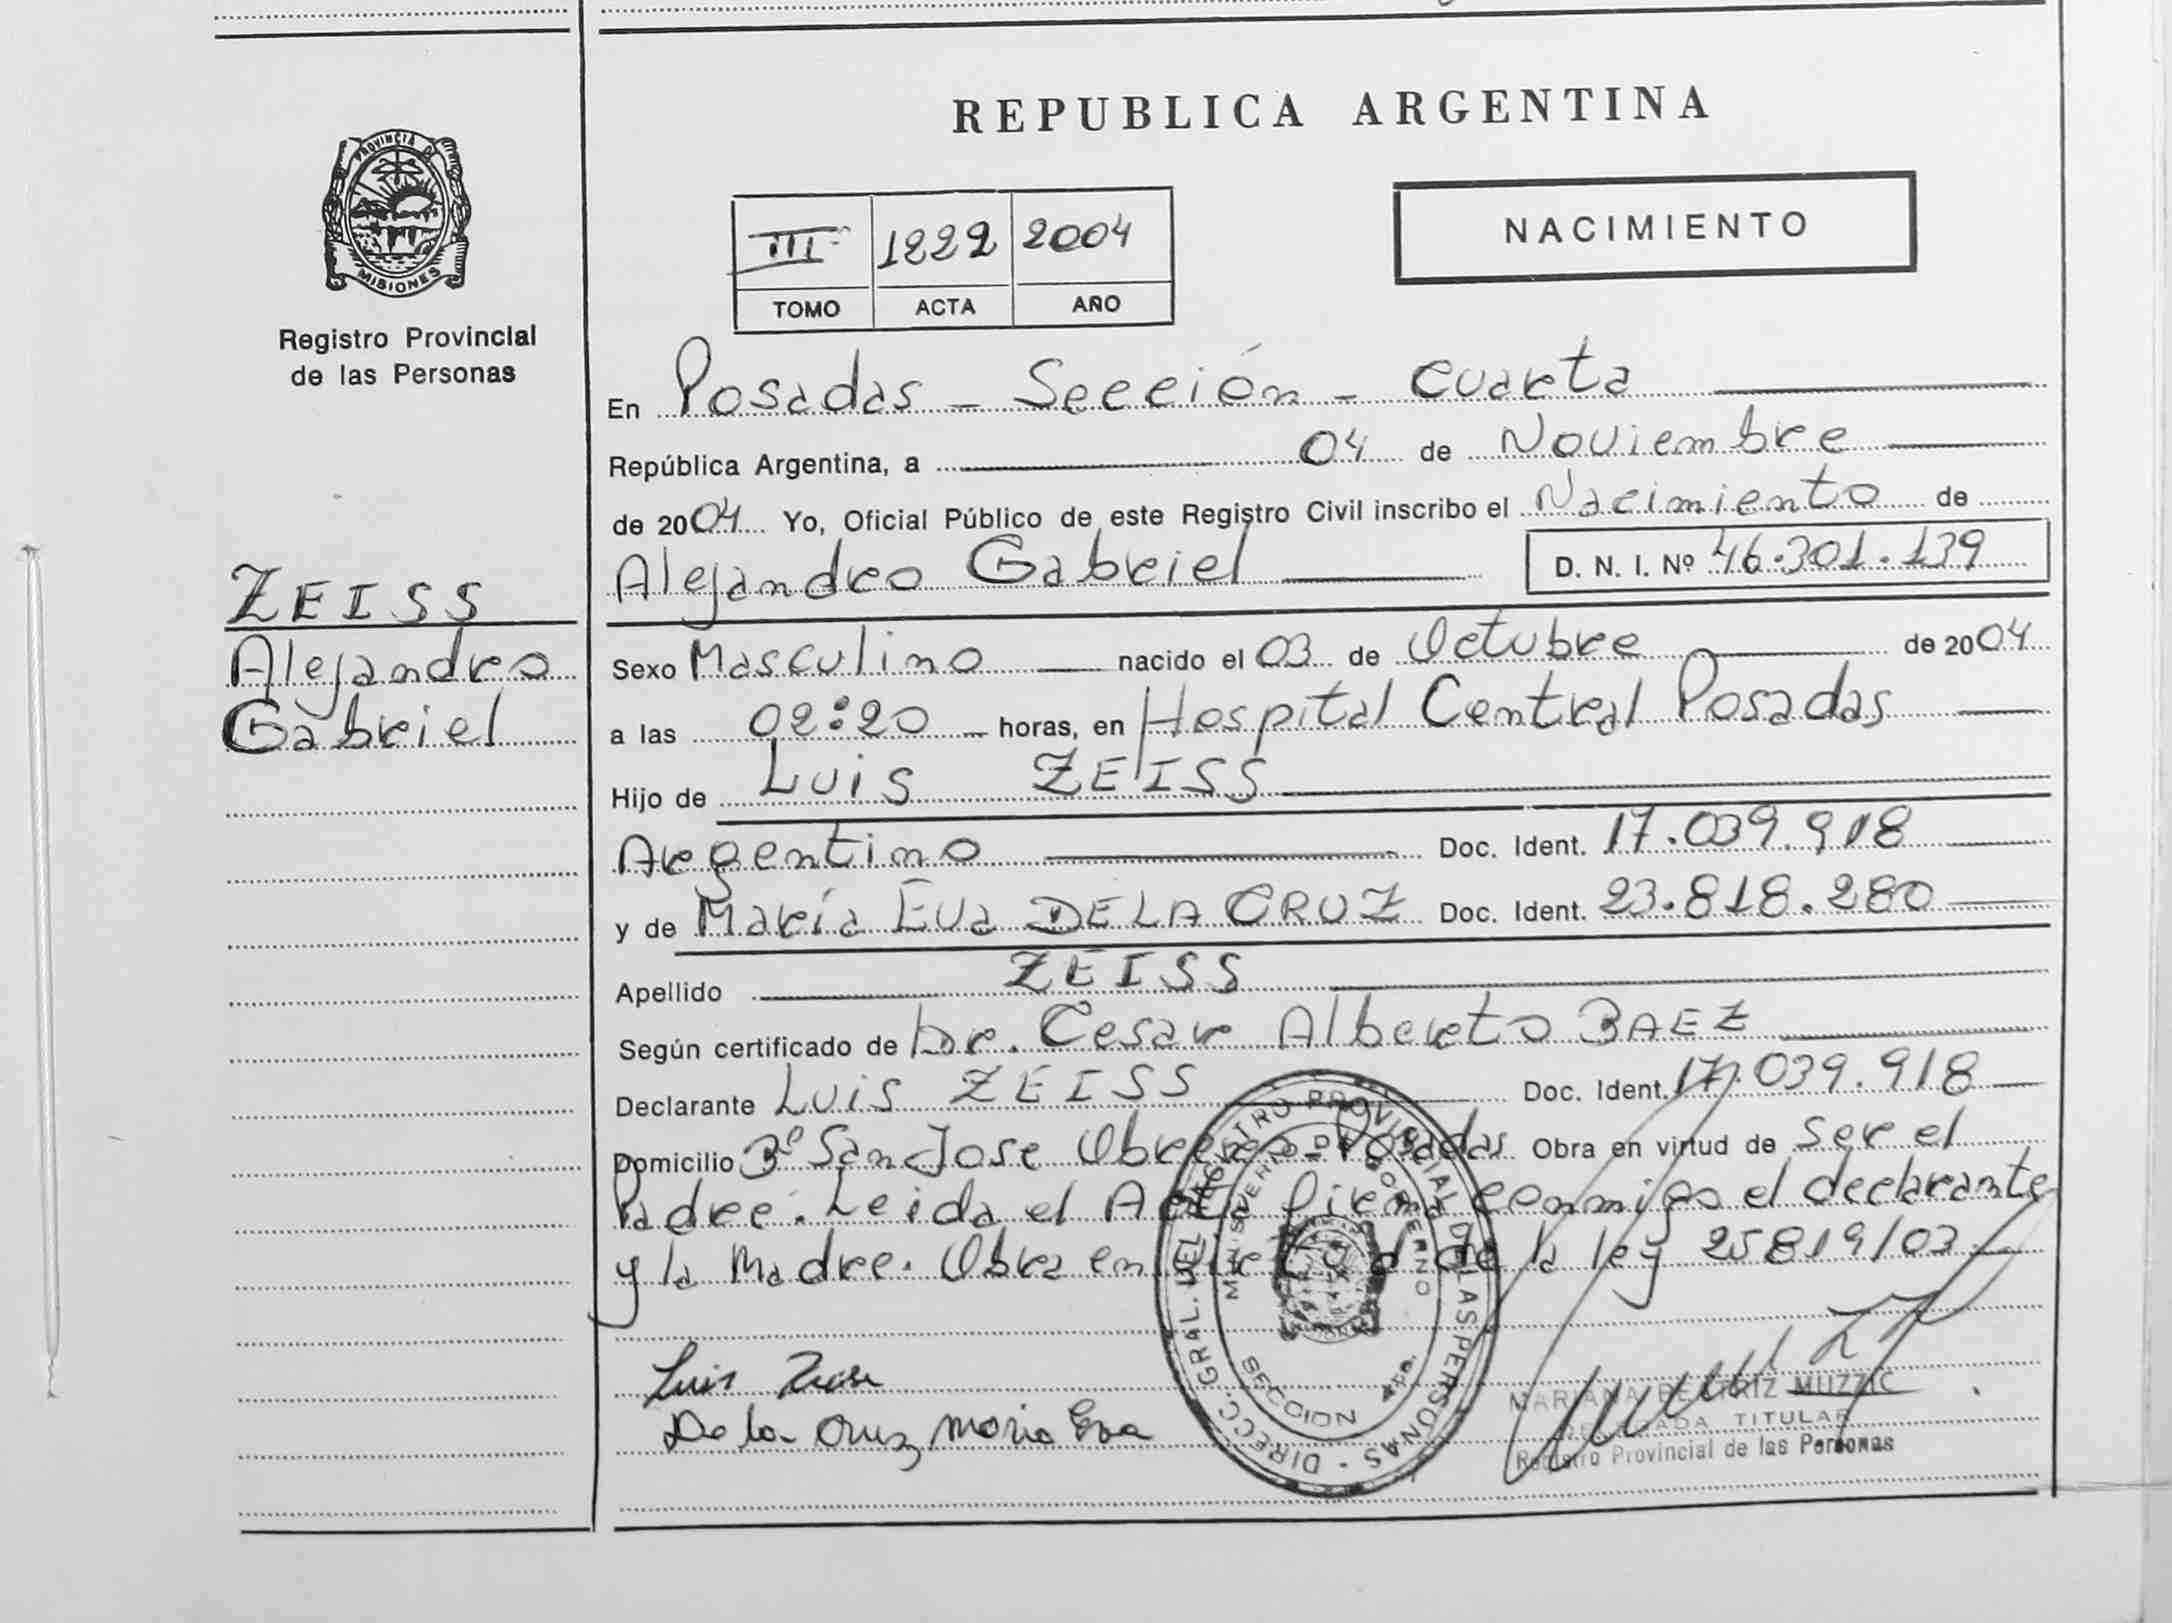 REPUBLICA ARGENTINA
PROVINCIA DE MISIONES
Registro Provincial
de las Personas
III 1222 2004
TOMO ACTA AÑO
NACIMIENTO
En Posadas - Sección - Cuarta
República Argentina, a 04 de Noviembre
de 2004 Yo, Oficial Público de este Registro Civil inscribo el Nacimiento de
Alejandro Gabriel D. N. I. Nº 46.301.139
ZEISS
Alejandro
Gabriel
Sexo Masculino nacido el 03 de Octubre de 2004
a las 02:20 horas, en Hospital Central Posadas
Hijo de Luis ZEISS
Argentino Doc. Ident. 17.039.918
y de María Eva DE LA CRUZ Doc. Ident. 23.818.280
Apellido ZEISS
Según certificado de Dr. Cesar Alberto BAEZ
Declarante Luis ZEISS Doc. Ident. 17.039.918
Domicilio Bº San Jose Obrero - Posadas Obra en virtud de Ser el
Padre. Leida el Acta firma conmigo el declarante
y la Madre. Obra en virtud de la ley 25819/03
Luis
De la Cruz Maria Eva
DIRECC. GRAL. DEL REGISTRO PROVINCIAL DE LAS PERSONAS
MINISTERIO DE GOBIERNO
SECCION 4ta.
MARIANA BEATRIZ MUZZIC
DELEGADA TITULAR
Registro Provincial de las Personas